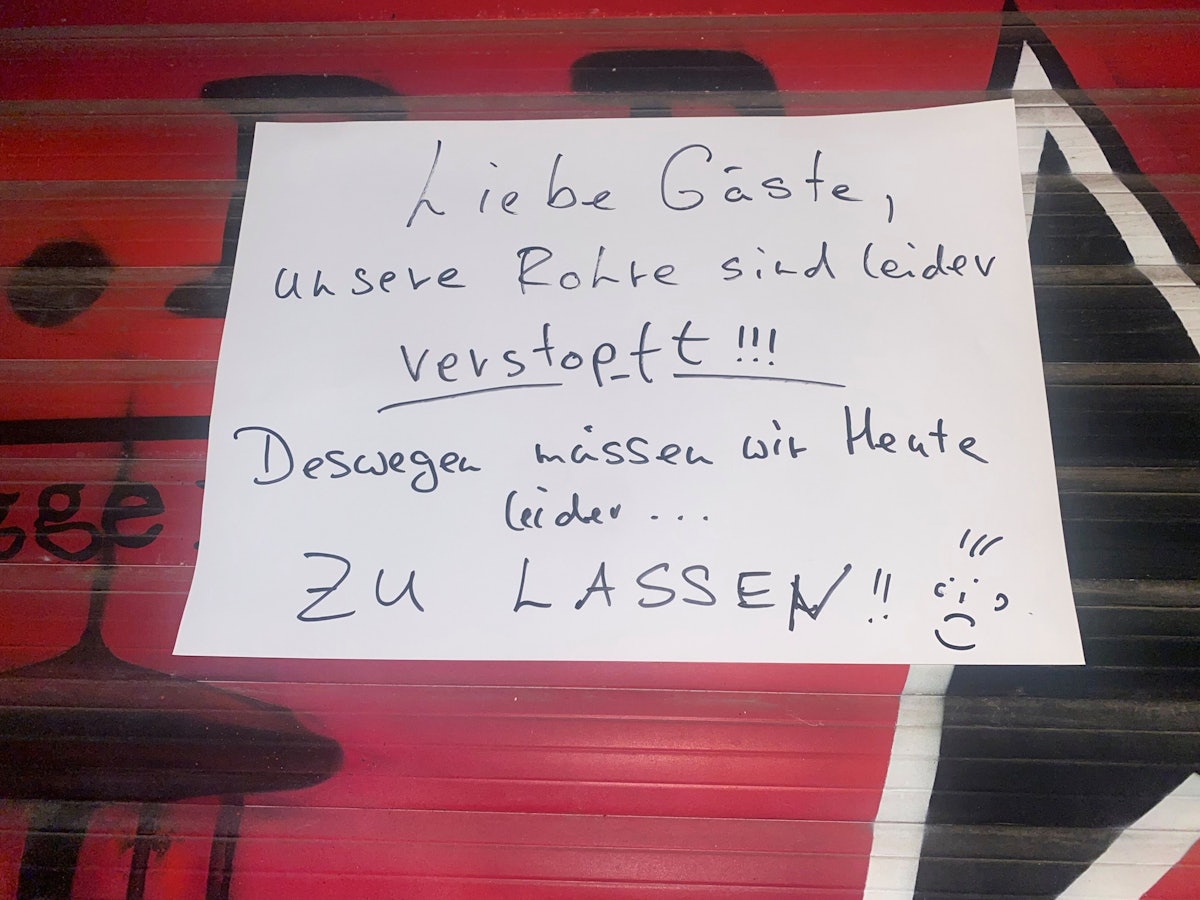 Liebe Gäste,
unsere Rohre sind leider
verstopft!!!
Deswegen müssen wir Heute
leider...
ZU LASSEN!!
gge